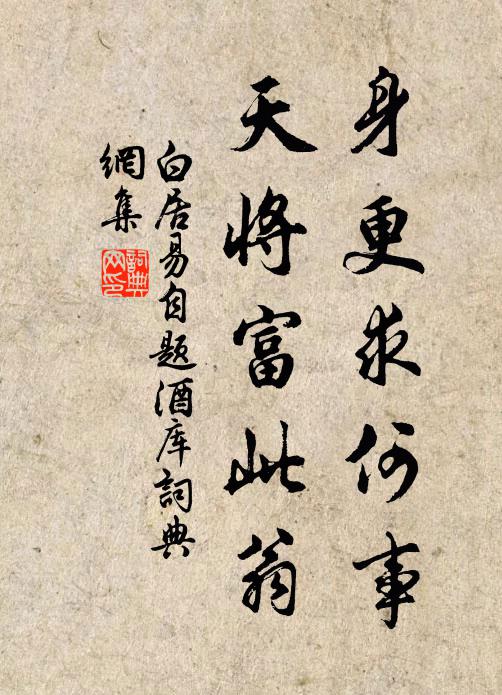 身更求何事
天将富此翁
白居易自题酒库詞典
網集
詞典
网印